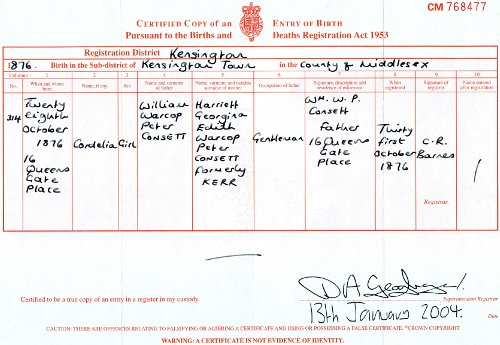 CERTIFIED COPY of an ENTRY OF BIRTH
Pursuant to the Births and Deaths Registration Act 1953
CM 768477
Registration District Kensington
1876. Birth in the Sub-district of Kensington Town in the County of Middlesex
Columns:- 1 2 3 4 5 6 7 8 9 10
No. When and where born Name, if any Sex Name and surname of father Name, surname and maiden surname of mother Occupation of father Signature, description and residence of informant When registered Signature of registrar Name entered after registration
314
Twenty
Eighth
October
1876
16
Queens
Gate
Place
Cordelia
Girl
William
Warcop
Peter
CONSETT
Harriett
Georgina
Edith
Warcop
Peter
CONSETT
formerly
KERR
Gentleman
Wm. W. P.
Consett
Father
16 Queens
Gate
Place
Thirty
first
October
1876
C.R.
Barnes
Registrar.
Certified to be a true copy of an entry in a register in my custody.
Superintendent Registrar
13th January 2004.
Date
CAUTION: THERE ARE OFFENCES RELATING TO FALSIFYING OR ALTERING A CERTIFICATE AND USING OR POSSESSING A FALSE CERTIFICATE. ©CROWN COPYRIGHT
WARNING: A CERTIFICATE IS NOT EVIDENCE OF IDENTITY.